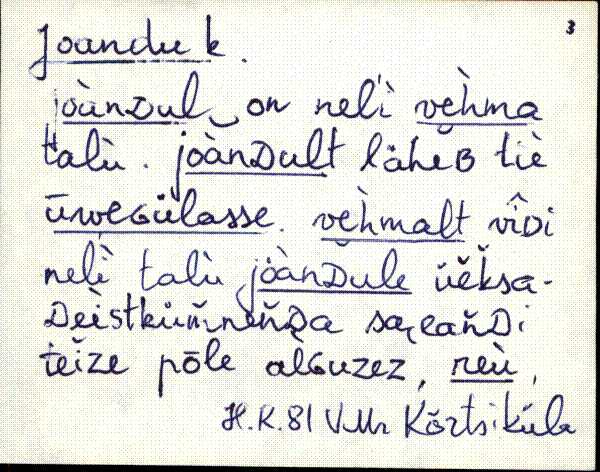 3
Joandu k.
joànDul‿on nel'i vèhma
talù. joànDult läheB tiè
ūrveGülasse. vèhmalt vîDi
nelì talù joànDule üĕksa-
Deìstküm̆neňDa saeaňDi
teìze pōle alGuzez, reù,
H.K.81 VMr Kõrtsiküla